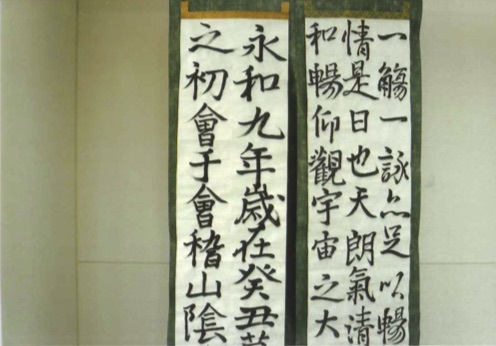 一觴一詠亦足以暢
情是日也天朗氣清
和暢仰觀宇宙之大
永和九年歳在癸丑
之初會于會稽山陰